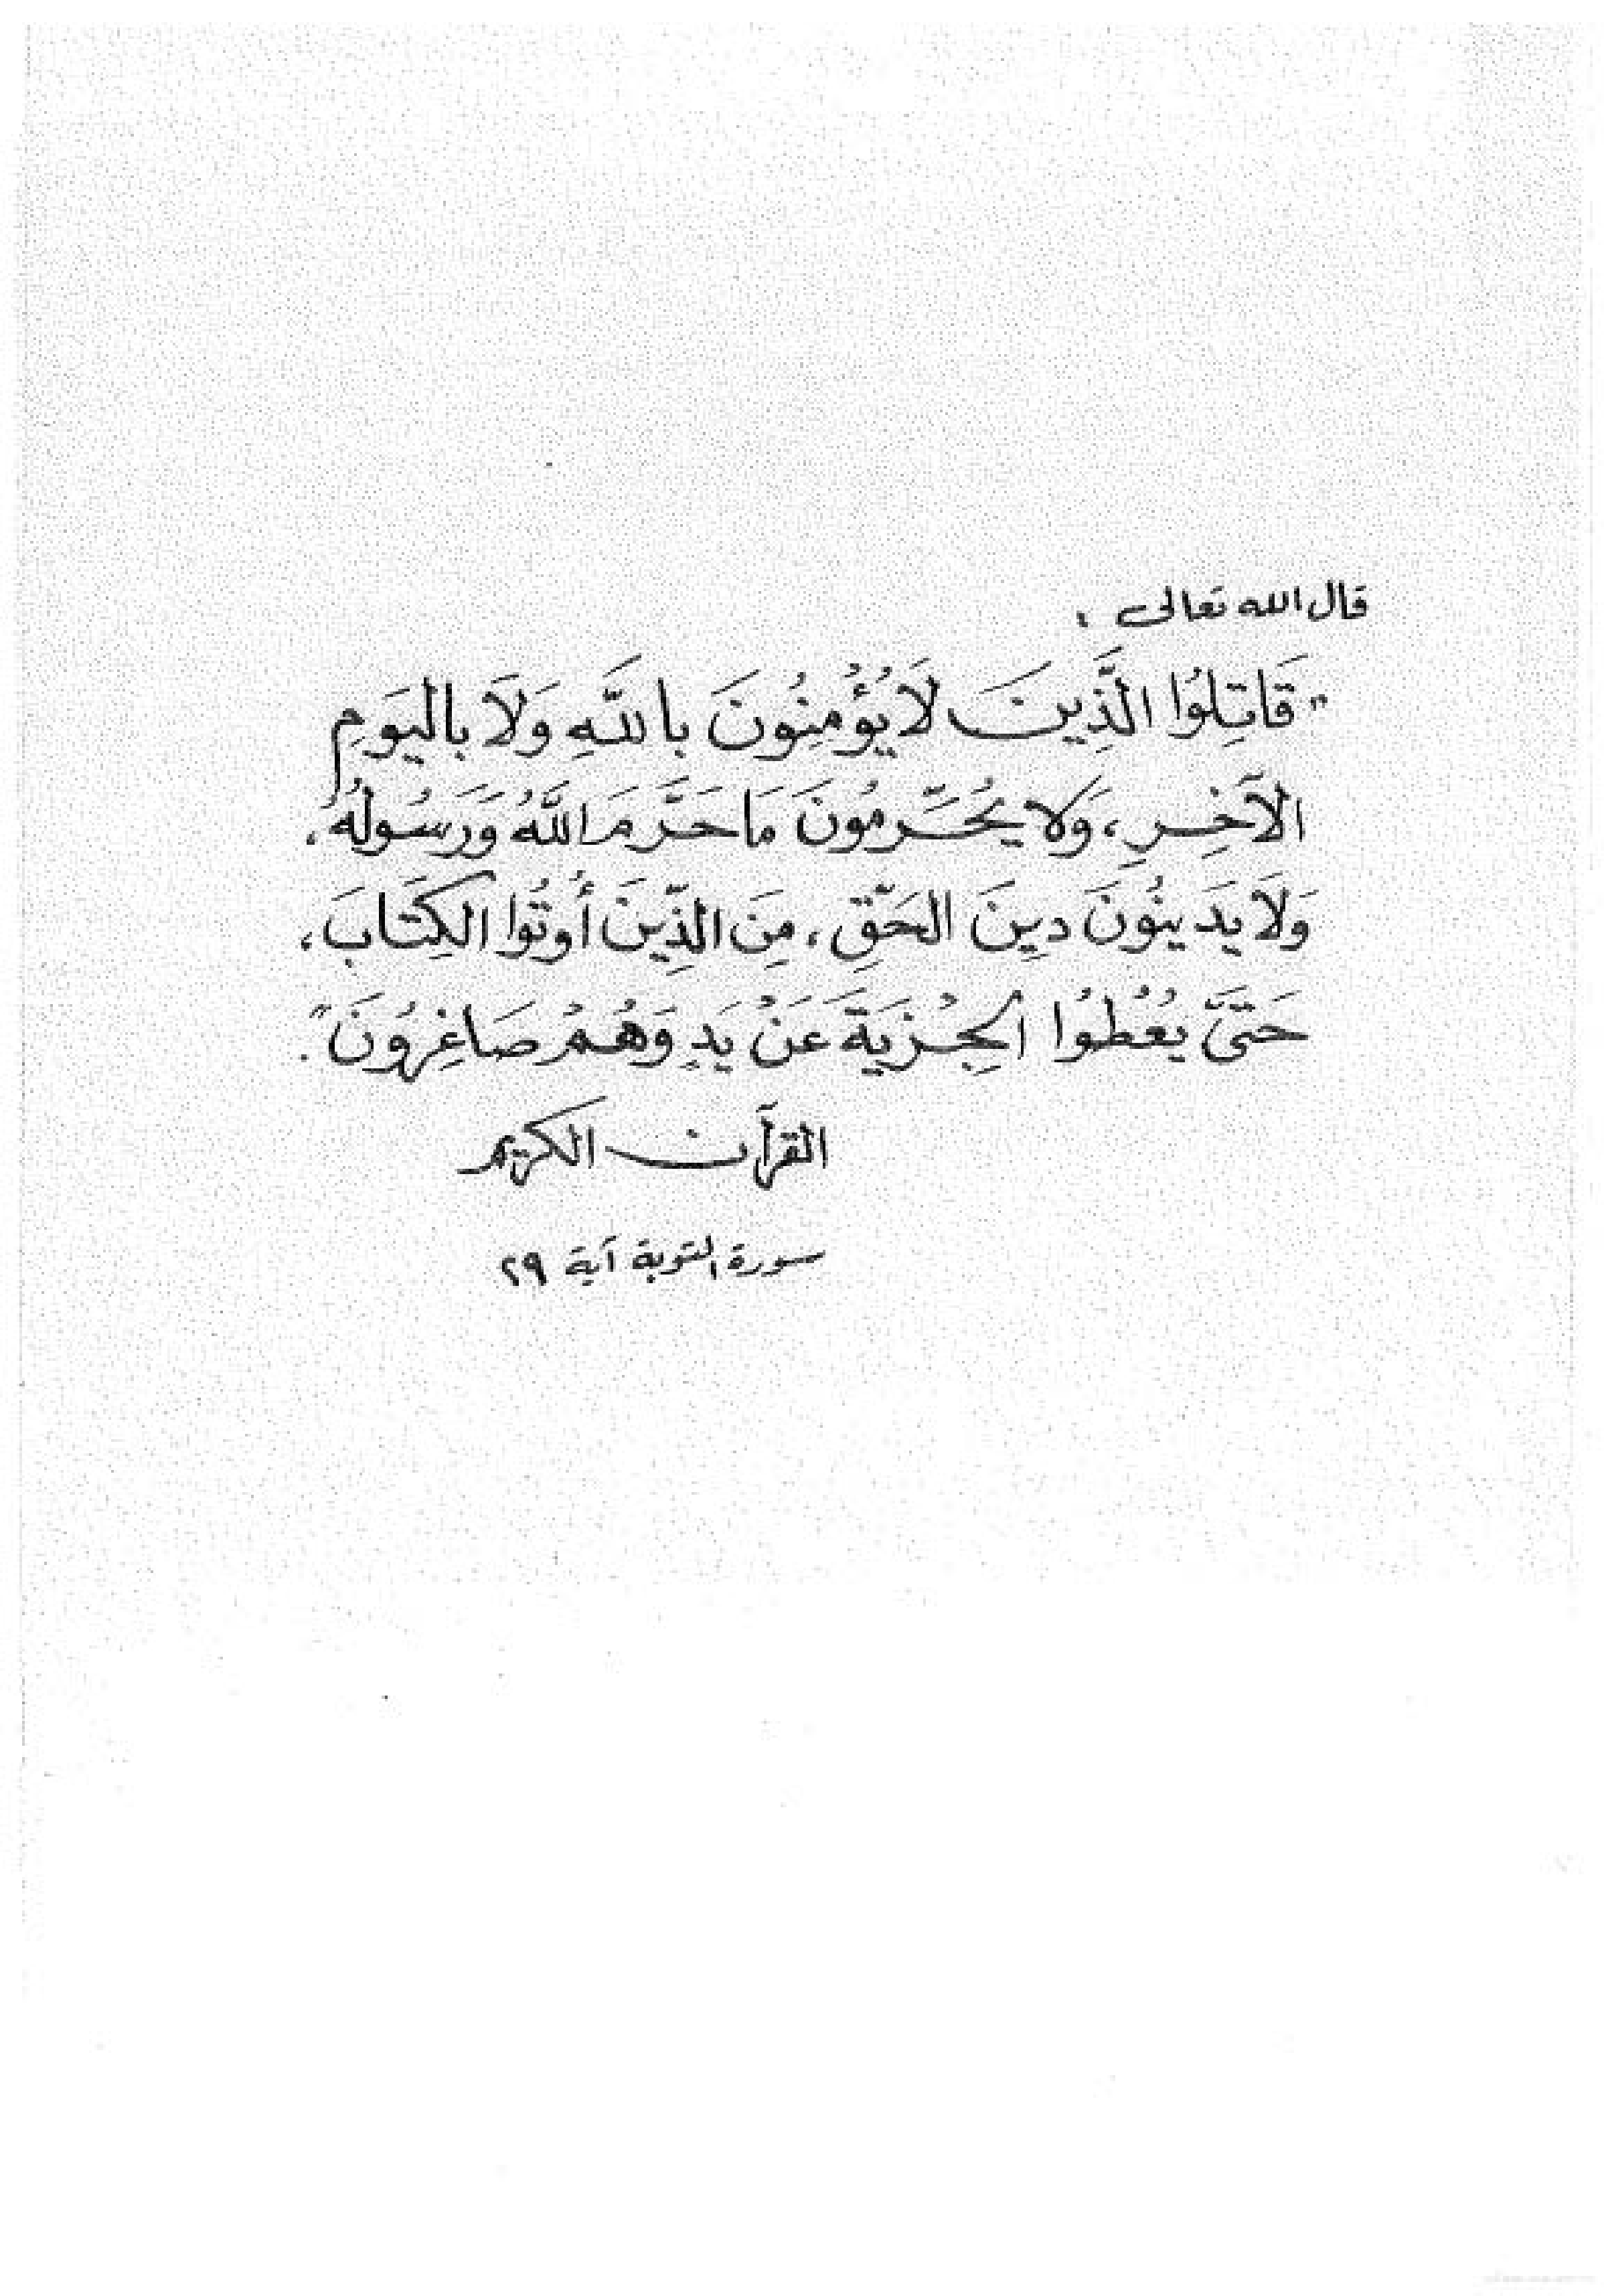 قال الله تعالى :
"قَاتِلُوا الَّذِينَ لَا يُؤْمِنُونَ بِاللَّهِ وَلَا بِاليَومِ
الآخِرِ، وَلا يُحَرِّمُونَ مَا حَرَّمَ اللَّهُ وَرَسُولُهُ،
وَلَا يَدينُونَ دِينَ الحَقِّ، مِنَ الَّذِينَ أُوتُوا الكِتَابَ،
حَتَّىَ يُعْطُوا الجِزْيَةَ عَنْ يَدٍ وَهُمْ صَاغِرُونَ".
القرآن الكريم
سورة التوبة آية ٢٩